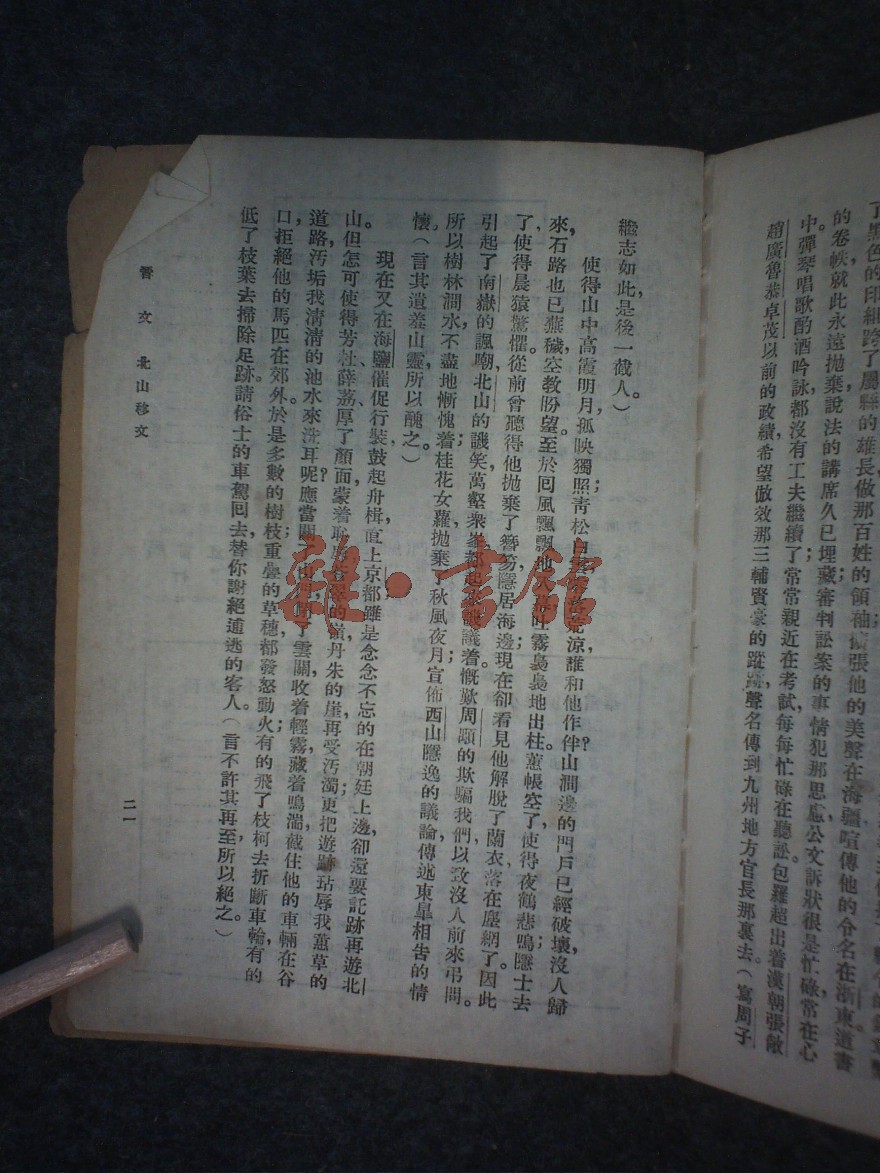 了黑色的印組跨了屬縣的雄長做那百姓的領袖擴張他的美聲在海疆喧傳他的令名在浙東道書
的卷帙就此永遠拋棄說法的講席久已埋藏審判訟案的事情犯那思慮公文訴狀很是忙碌常在心
中彈琴唱歌酌酒吟詠都沒有工夫繼續了常常親近在考試每每忙碌在聽訟包羅超出着漢朝張敞
趙廣魯恭卓茂以前的政績希望倣效那三輔賢豪的蹤跡聲名傳到九州地方官長那裏去（寫周子
繼志如此是後一截人。）
使得山中高霞明月，孤映獨照；青松白落荒涼，誰和他作伴？山澗邊的門戶已經破壞，沒人歸
來，石路也已蕪穢空教盼望。至於囘風飄飄地入吐霧裊裊地出柱蕙帳空了，使得夜鶴悲鳴；隱士去
了，使得晨猿驚懼。從前曾聽得他拋棄了簪笏，隱居海邊，現在卻看見他解脫了蘭衣，落在塵網了。因此
引起了南嶽的諷嘲，北山的譏笑，萬壑衆峯都起來議着，慨歎周顒的欺騙我們，以致沒人前來弔問。
所以樹林澗水不盡地慚愧着；桂花女蘿拋棄秋風夜月；宣佈西山隱逸的議論，傳述東皐相告的情
懷。（言其遺羞山靈，所以醜之。）
現在又在海鹽催促行裝，鼓起舟楫，直上京都，雖是念念不忘的在朝廷上邊，卻還要託跡再遊北
山。但怎可使得芳杜、薜荔，厚了顏面，蒙着恥辱，的嶺，丹朱的崖，再受汚濁；更把遊跡玷辱我蕙草的
道路，汚垢我淸淸的池水來洗耳呢？應當關了，閉了雲關，收着輕霧，藏着鳴湍，截住他的車輛在谷
口，拒絕他的馬匹在郊外。於是多數的樹枝；重疊的草穗，都發怒動火；有的飛了枝柯去折斷車輪，有的
低了枝葉去掃除足跡。請俗士的車駕囘去，替你謝絕逋逃的客人。（言不許其再至，所以絕之。）
晉文　北山移文
二一
雜·書館